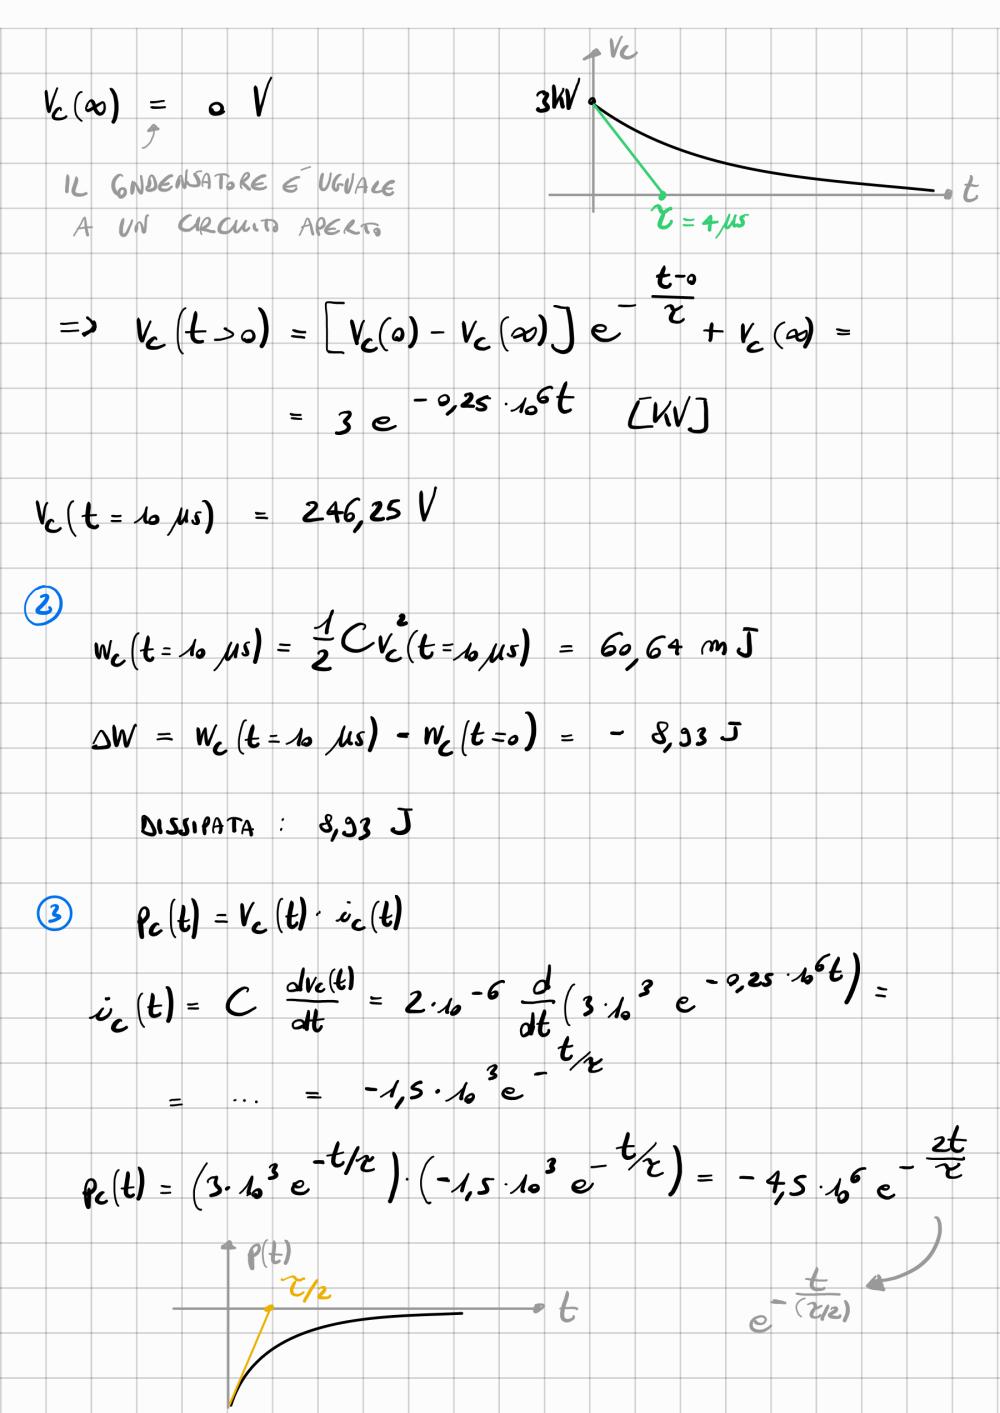 Vc
Vc(∞) = 0 V
3kV
IL CONDENSATORE E' UGUALE
A UN CIRCUITO APERTO
t
τ = 4 μs
=> Vc(t>0) = [Vc(0) - Vc(∞)] e^(-(t-0)/τ) + Vc(∞) =
= 3 e^(-0,25·10^6 t) [KV]
Vc(t = 10 μs) = 246,25 V
2
Wc(t=10 μs) = 1/2 C Vc²(t=10 μs) = 60,64 mJ
ΔW = Wc(t=10 μs) - Wc(t=0) = - 8,93 J
DISSIPATA : 8,93 J
3
Pc(t) = Vc(t) · ic(t)
ic(t) = C dvc(t)/dt = 2·10^-6 d/dt (3·10^3 e^(-0,25·10^6 t)) =
= ... = -1,5·10^3 e^(-t/τ)
Pc(t) = (3·10^3 e^(-t/τ)) · (-1,5·10^3 e^(-t/τ)) = -4,5·10^6 e^(-2t/τ)
p(t)
τ/2
t
e^(-t/(τ/2))